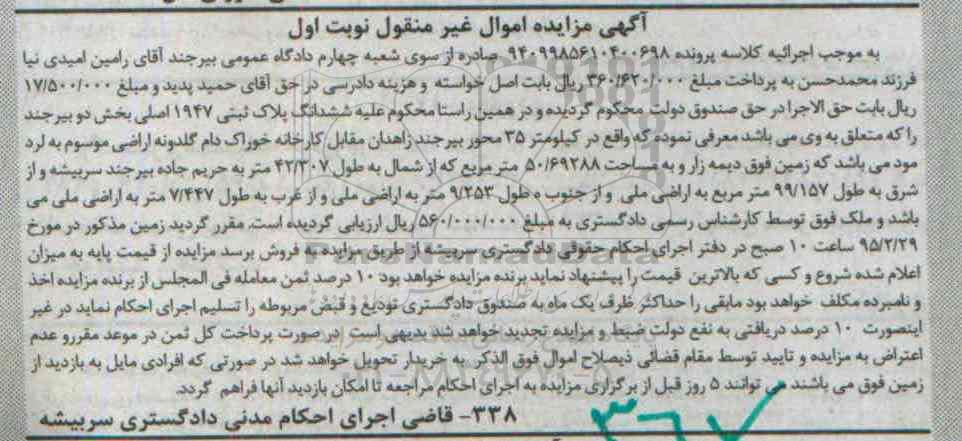 آگهی مزایده اموال غیر منقول نوبت اول
به موجب اجرائیه کلاسه پرونده ۹۴۰۹۹۸۵۶۱۰۴۰۰۶۹۸ صادره از سوی شعبه چهارم دادگاه عمومی بیرجند آقای رامین امیدی نیا
فرزند محمدحسن به پرداخت مبلغ ۳۶۰/۶۲۰/۰۰۰ ریال بابت اصل خواسته و هزینه دادرسی در حق آقای حمید پدید و مبلغ ۱۷/۵۰۰/۰۰۰
ریال بابت حق الاجرا در حق صندوق دولت محکوم گردیده و در همین راستا محکوم علیه ششدانگ پلاک ثبتی ۱۹۴۷ اصلی بخش دو بیرجند
را که متعلق به وی می باشد معرفی نموده که واقع در کیلومتر ۳۵ محور بیرجند زاهدان مقابل کارخانه خوراک دام گلدونه اراضی موسوم به لرد
مود می باشد که زمین فوق دیمه زار و به مساحت ۵۰/۶۹۲۸۸ متر مربع که از شمال به طول ۴۲/۳۰۷ متر به حریم جاده بیرجند سربیشه و از
شرق به طول ۹۹/۱۵۷ متر مربع به اراضی ملی و از جنوب ه طول ۹/۲۵۳ متر به اراضی ملی و از غرب به طول ۷/۴۴۷ متر به اراضی ملی می
باشد و ملک فوق توسط کارشناس رسمی دادگستری به مبلغ ۵۶۰/۰۰۰/۰۰۰ ریال ارزیابی گردیده است. مقرر گردید زمین مذکور در مورخ
۹۵/۲/۲۹ ساعت ۱۰ صبح در دفتر اجرای احکام حقوقی دادگستری سربیشه از طریق مزایده به فروش برسد مزایده از قیمت پایه به میزان
اعلام شده شروع و کسی که بالاترین قیمت را پیشنهاد نماید برنده مزایده خواهد بود ۱۰ درصد ثمن معامله فی المجلس از برنده مزایده اخذ
و نامبرده مکلف خواهد بود مابقی را حداکثر ظرف یک ماه به صندوق دادگستری تودیغ و قبض مربوطه را تسلیم اجرای احکام نماید در غیر
اینصورت ۱۰ درصد دریافتی به نفع دولت ضبط و مزایده تجدید خواهد شد بدیهی است در صورت پرداخت کل ثمن در موعد مقرر و عدم
اعتراض به مزایده و تایید توسط مقام قضائی ذیصلاح اموال فوق الذکر به خریدار تحویل خواهد شد در صورتی که افرادی مایل به بازدید از
زمین فوق می باشند می توانند ۵ روز قبل از برگزاری مزایده به اجرای احکام مراجعه تا امکان بازدید آنها فراهم گردد.
۳۳۸- قاضی اجرای احکام مدنی دادگستری سربیشه
۳۶۷